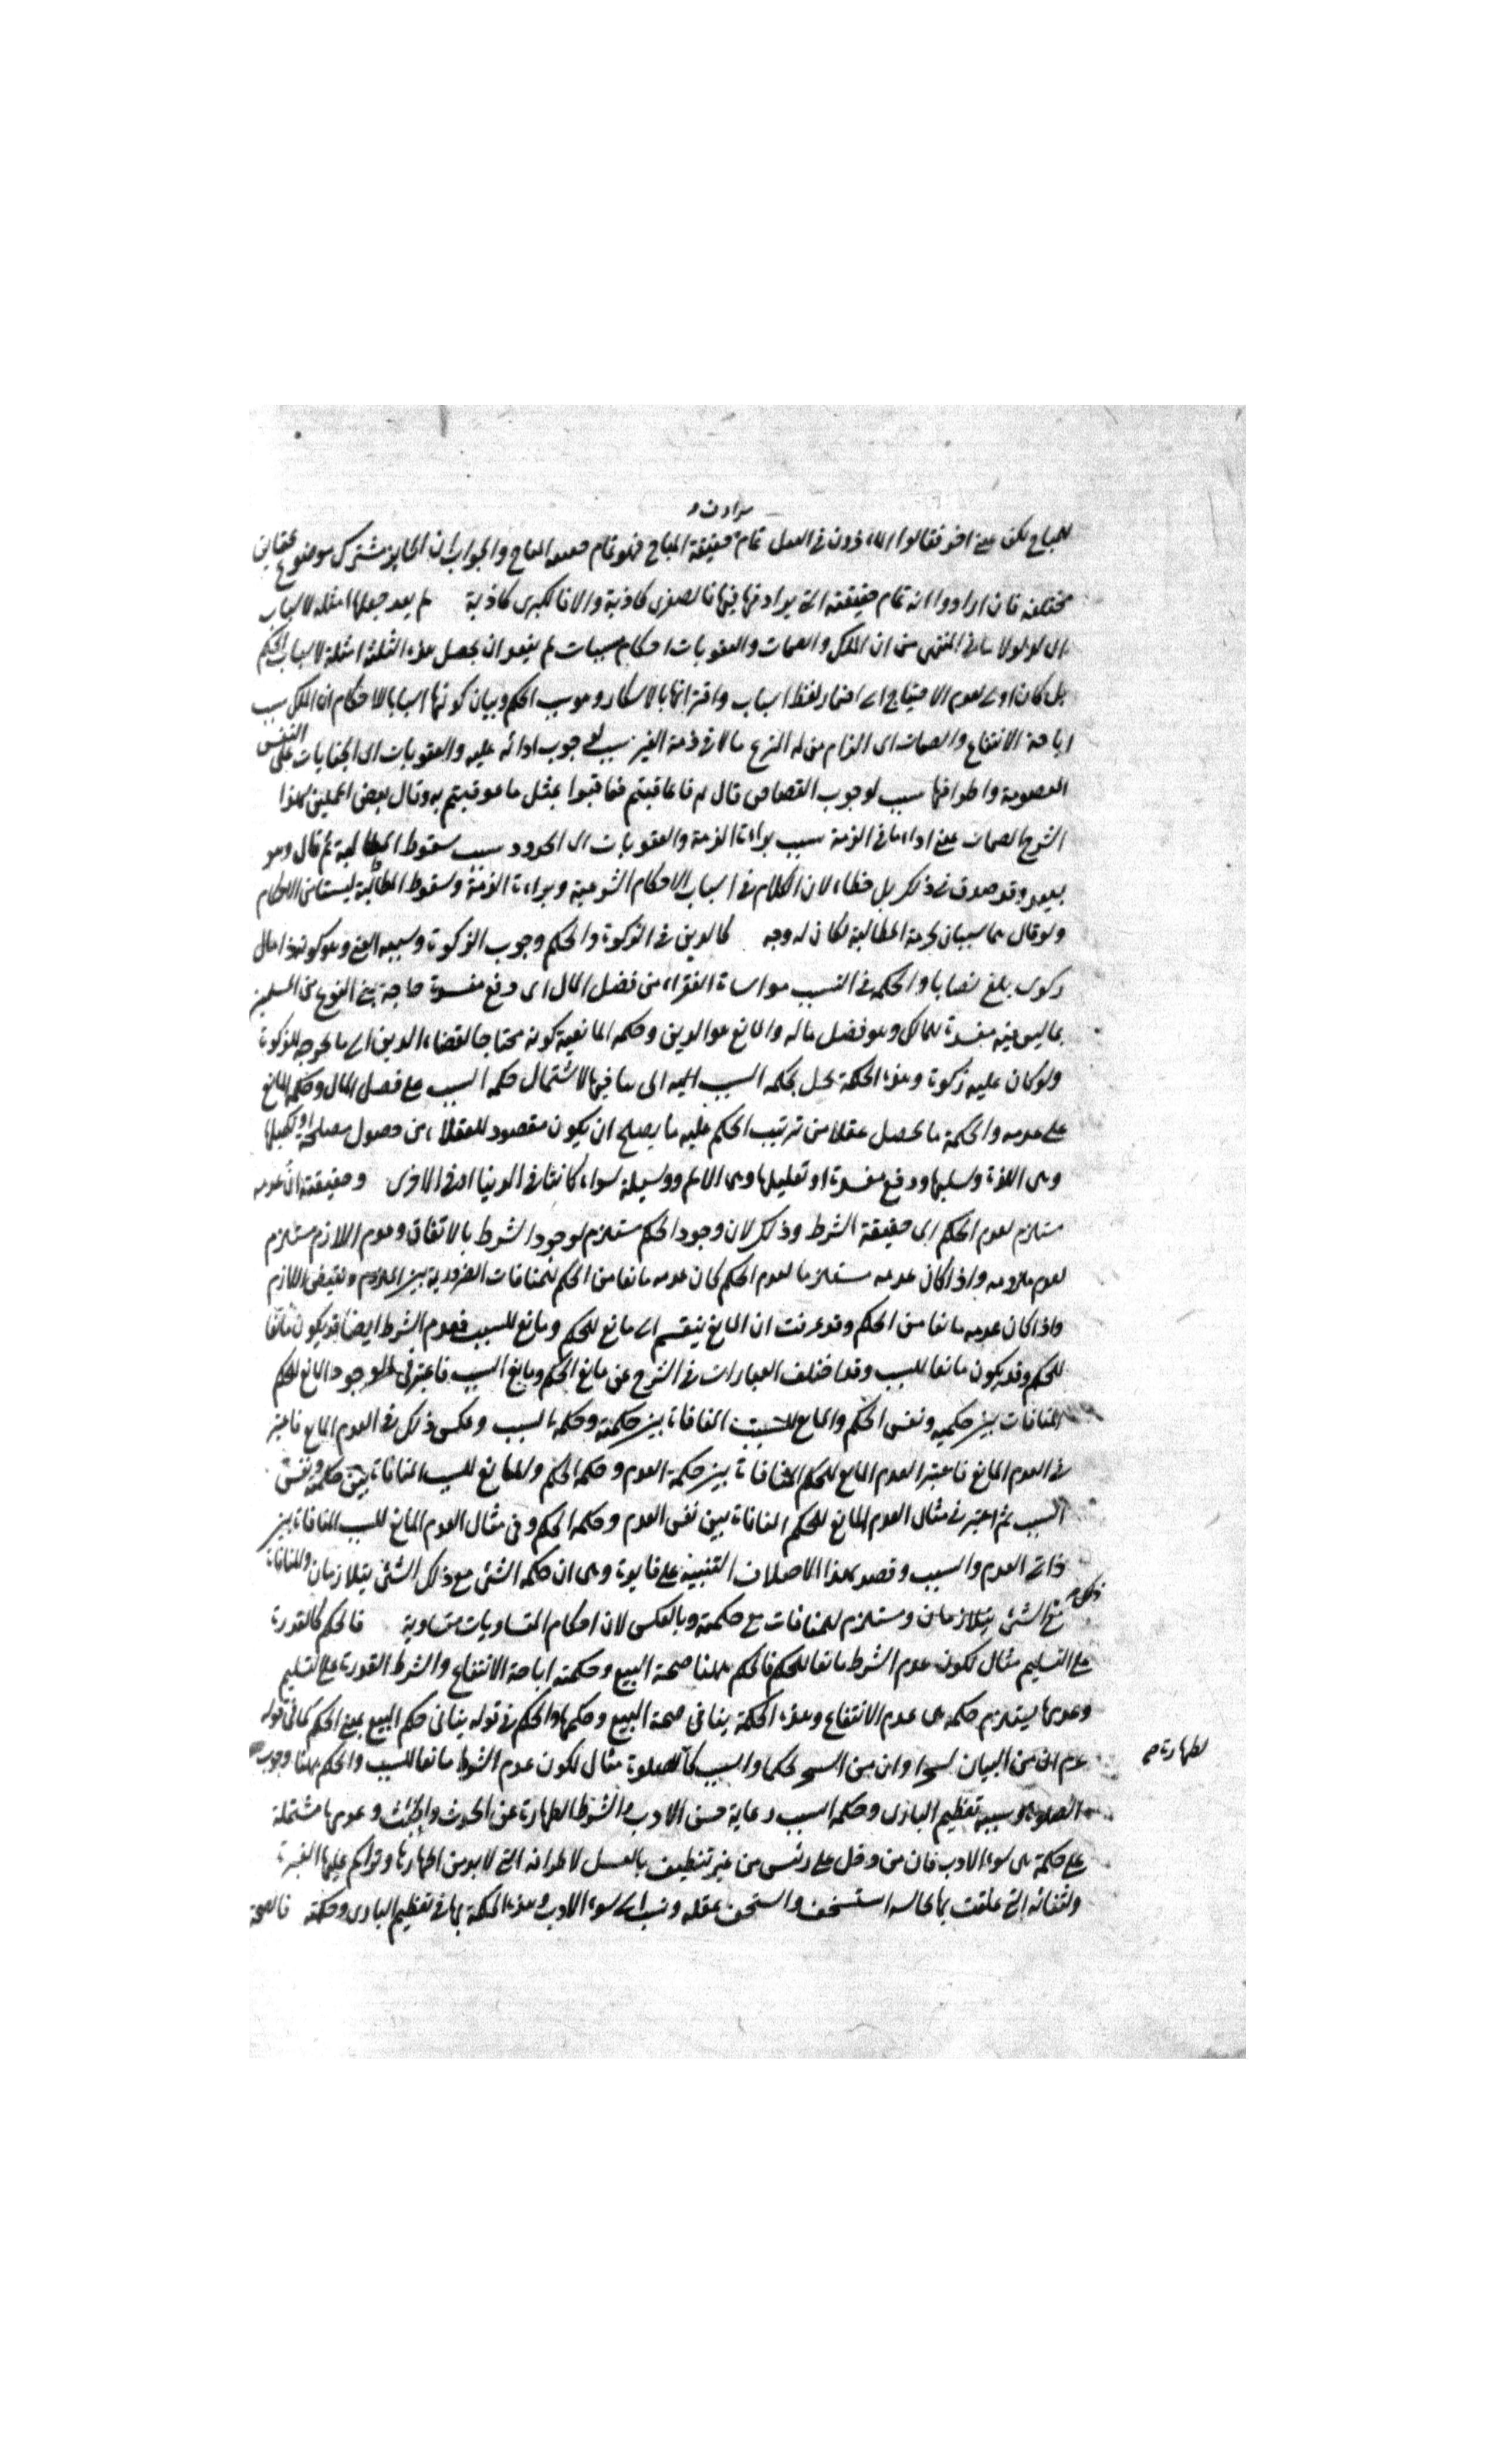 مرادف و
للمباح لكن على اخر فقالوا المأذون في الفعل تمام حقيقة المباح فهو تمام حقيقة المباح والجواب ان الجايز مشترك موضوع لحقايق
مختلفة فان ارادوا انه تمام حقيقته التي يرادفها فيها فالصغرى كاذبة والا فالكبرى كاذبة لم يبعد جعلها امثلة لاسباب
اى لو لولا ما في المنتهى من ان الملك والضمان والعقوبات احكام مسببات لم يبعد ان يجعل هذه الثلثة امثلة لاسباب الحكم
بل كان اولى لعدم الاحتياج الى اضمار لفظ اسباب واقترانها بالاسكار وهو سبب الحكم وبيان كونها اسبابا للاحكام ان الملك سبب
اباحة الانتفاع والضمان اى الزام من له الشرع مالا في ذمة الغير سبب لوجوب ادائه عليه والعقوبات اى الجنايات على النفس
المعصومة واطرافها سبب لوجوب القصاص قال فان عاقبتم فعاقبوا بمثل ما عوقبتم به وقال بعض المحلين لهذا
الشرح الضمان على اداء ما في الذمة سبب براءة الذمة والعقوبات اى الحدود سبب سقوط المطالبة ثم قال وهو
بعيد وقد صدق في ذلك بل خطاء لان الكلام في اسباب الاحكام الشرعية وبراءة الذمة وسقوط المطالبة ليستا من الاحكام
ولو قال هما سببان لحرمة المطالبة لكان له وجه كالدين في الزكوة والحكم وجوب الزكوة وسببه الغنى وهو كونه ذا مال
زكوى بلغ نصابا والحكمة في السبب مواساة الفقراء من فضل المال اى دفع مفسدة حاجة بني النوع من المسلمين
بما ليس فيه مفسدة للمالك وهو فضل ماله والمانع هو الدين وحكمة المانعية كونه محتاجا لقضاء الدين الى ما يخرجه للزكوة
ولو كان عليه زكوة وهذه الحكمة تخل بحكمة السبب اى ينافيها لاشتمال حكمة السبب على فضل المال وحكمة المانع
على عدمه والحكمة ما يحصل عقلا من ترتيب الحكم عليه ما يصلح ان يكون مقصود للعقلاء من حصول مصلحة او تكميلها
وهى اللذة وسبيلها ودفع مفسدة او تقليلها وهى الالم ووسيلته سواء كانتا في الدنيا او في الاخرى وحقيقته ان عدمه
مستلزم لعدم الحكم اى حقيقة الشرط وذلك لان وجود الحكم مستلزم لوجود الشرط بالاتفاق وعدم اللازم مستلزم
لعدم ملزومه واذا كان عدمه مستلزما لعدم الحكم كان عدمه مانعا من الحكم للمنافات الضرورية بين الملزوم ونقيض اللازم
واذا كان عدمه مانعا من الحكم وقد عرفت ان المانع ينقسم الى مانع للحكم ومانع للسبب فعدم الشرط ايضا قد يكون مانعا
للحكم وقد يكون مانعا للسبب وقد اختلف العبارات في الشرح عن مانع الحكم ومانع السبب فاعتبر في الوجود المانع للحكم
المنافات بين حكميه ونفس الحكم والمانع للسبب المنافاة بين حكمته وحكمة السبب وعكس ذلك في العدم المانع فاعتبر
في العدم المانع فاعتبر العدم المانع للحكم المنافاة بين حكمة العدم وحكمة الحكم وللمانع للسبب المنافاة بين حكمته ونفس
السبب ثم اعتبر في مثال العدم المانع للحكم المنافاة بين نفس العدم وحكمة الحكم وفى مثال العدم المانع للسبب المنافاة بين
ذاتى العدم والسبب وقصد بهذا الاختلاف التنبيه على فايدة وهى ان حكمة الشئ مع ذلك الشئ يتلازمان وللمنافاة
مع الشئ يتلازمان ومستلزم للمنافات مع حكمته وبالعكس لان احكام المتساويات متساوية فالحكم كالقدرة
على التسليم مثال لكون عدم الشرط مانعا للحكم فالحكم ههنا صحة البيع وحكمته اباحة الانتفاع والشرط القدرة على التسليم
وعدمها يستلزم حكمة هى عدم الانتفاع وهذه الحكمة ينافى صحة البيع وحكمها والحكم في قوله ينافى حكم البيع بمعنى الحكم كما في قوله
عم ان من البيان لسحرا وان من السحر لحكما والسبب كالصلوة مثال لكون عدم الشرط مانعا للسبب والحكم ههنا وجوب
لطهارة صح
الصلوة وسببه تعظيم البارى وحكمة السبب رعاية حسن الادب والشرط الطهارة عن الحدث والخبث وعدمها مشتملة
على حكمة هى سوء الادب فان من دخل على رئيس من غير تنظيف بالغسل لاطرافه التى لا بد من اظهارها وتراكم عليها الغبرة
ولثفاثه التي علقت بها بحاله استسخف واستخف عقله ونسب الى سوء الادب وهذه الحكمة تنافى تعظيم البارى وحكمته فالصحة